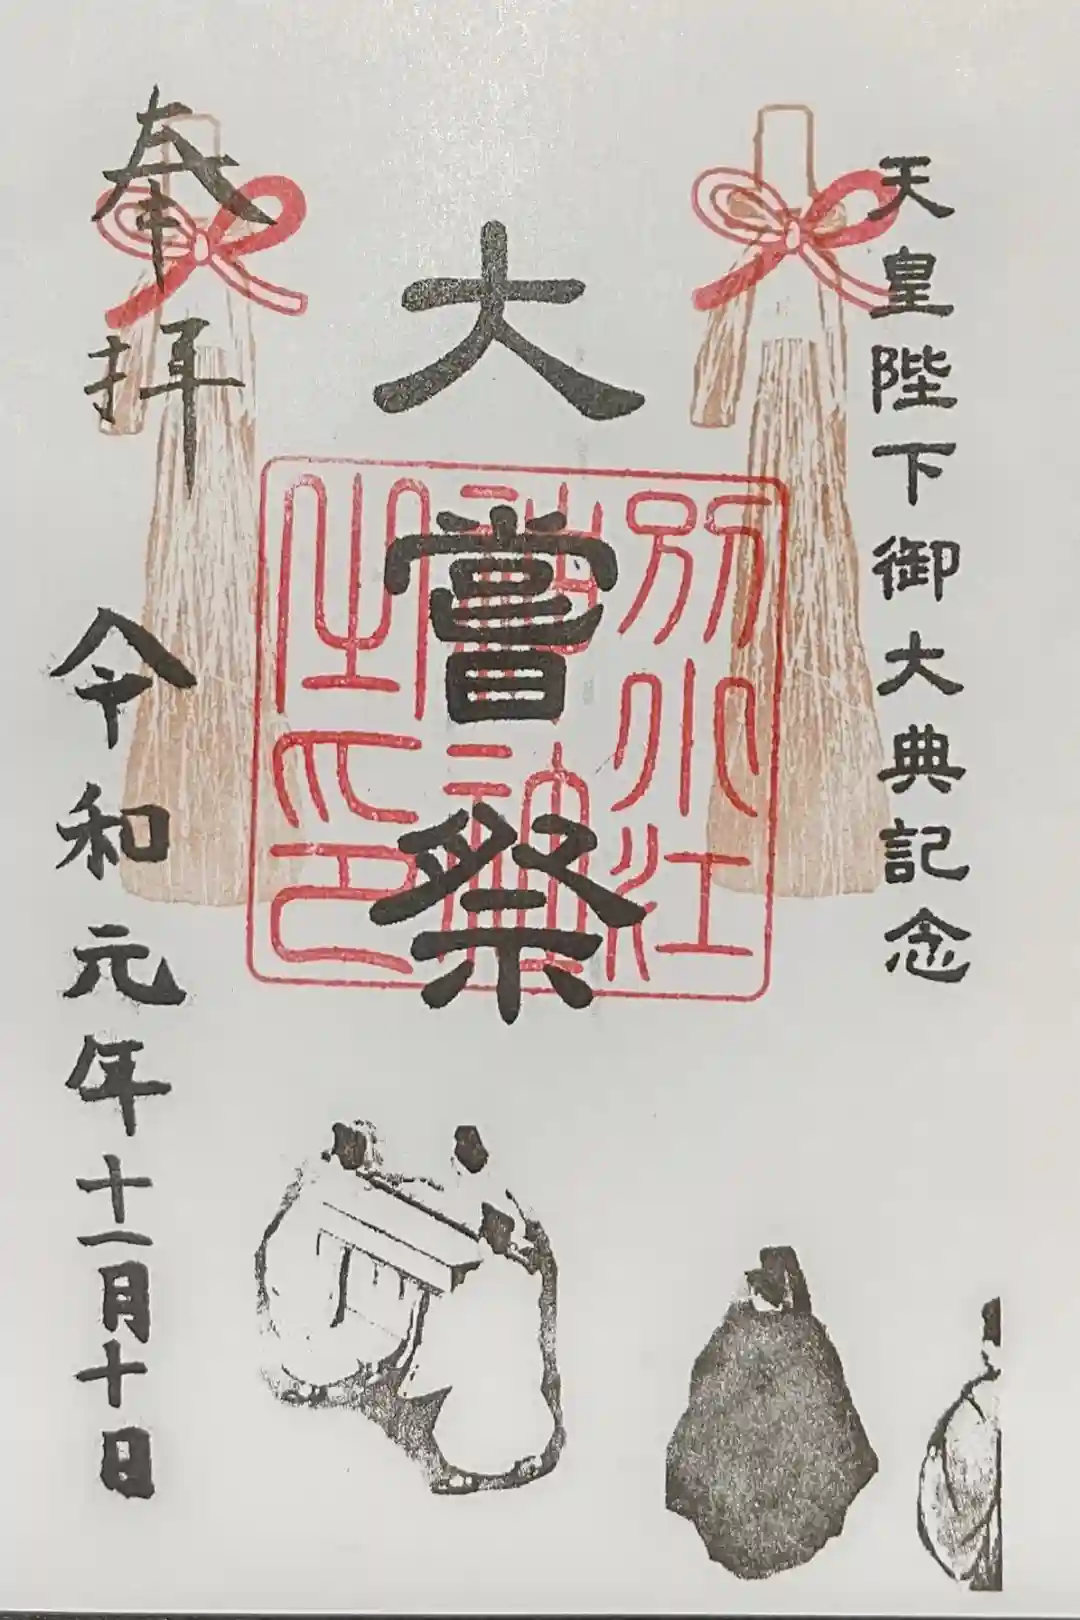 天皇陛下御大典記念
大嘗祭
別小江
神社
神
之印
奉拝
令和元年十一月十日